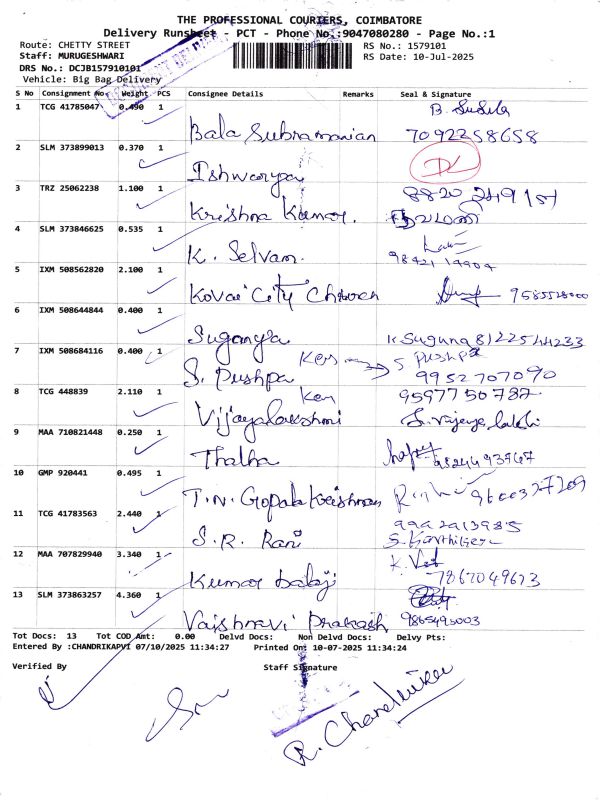 THE PROFESSIONAL COURIERS, COIMBATORE
Delivery Runsheet - PCT - Phone No.:9047080280 - Page No.:1
Route: CHETTY STREET
RS No.: 1579101
Staff: MURUGESHWARI
RS Date: 10-Jul-2025
DRS No.: DCJB157910101
Vehicle: Big Bag Delivery
S No Consignment No Weight PCS Consignee Details Remarks Seal & Signature
1 TCG 41785047 0.490 1 B. Susila
Bala Subramanian 7092258658
2 SLM 373899013 0.370 1 DL
Ishwarya
3 TRZ 25062238 1.100 1
Krishna Kumar.
4 SLM 373846625 0.535 1
K. Selvam.
5 IXM 508562820 2.100 1
Kovai City Church 9585528000
6 IXM 508644844 0.400 1
Suganya K Suguna 8122544233
7 IXM 508684116 0.400 1 S Pushpa
S. Pushpa 9952707090
8 TCG 448839 2.110 1 9597750787
Vijayalakshmi
9 MAA 710821448 0.250 1
Thalha
10 GMP 920441 0.495 1
T.N. Gopala Krishnan
11 TCG 41783563 2.440 1
S.R. Rani
12 MAA 707829940 3.340 1
Kumar balaji 7867049673
13 SLM 373863257 4.360 1
Vaishnavi Prakash 9865495003
Tot Docs: 13 Tot COD Amt: 0.00 Delvd Docs: Non Delvd Docs: Delvy Pts:
Entered By :CHANDRIKAPVI 07/10/2025 11:34:27 Printed On: 10-07-2025 11:34:24
Verified By Staff Signature